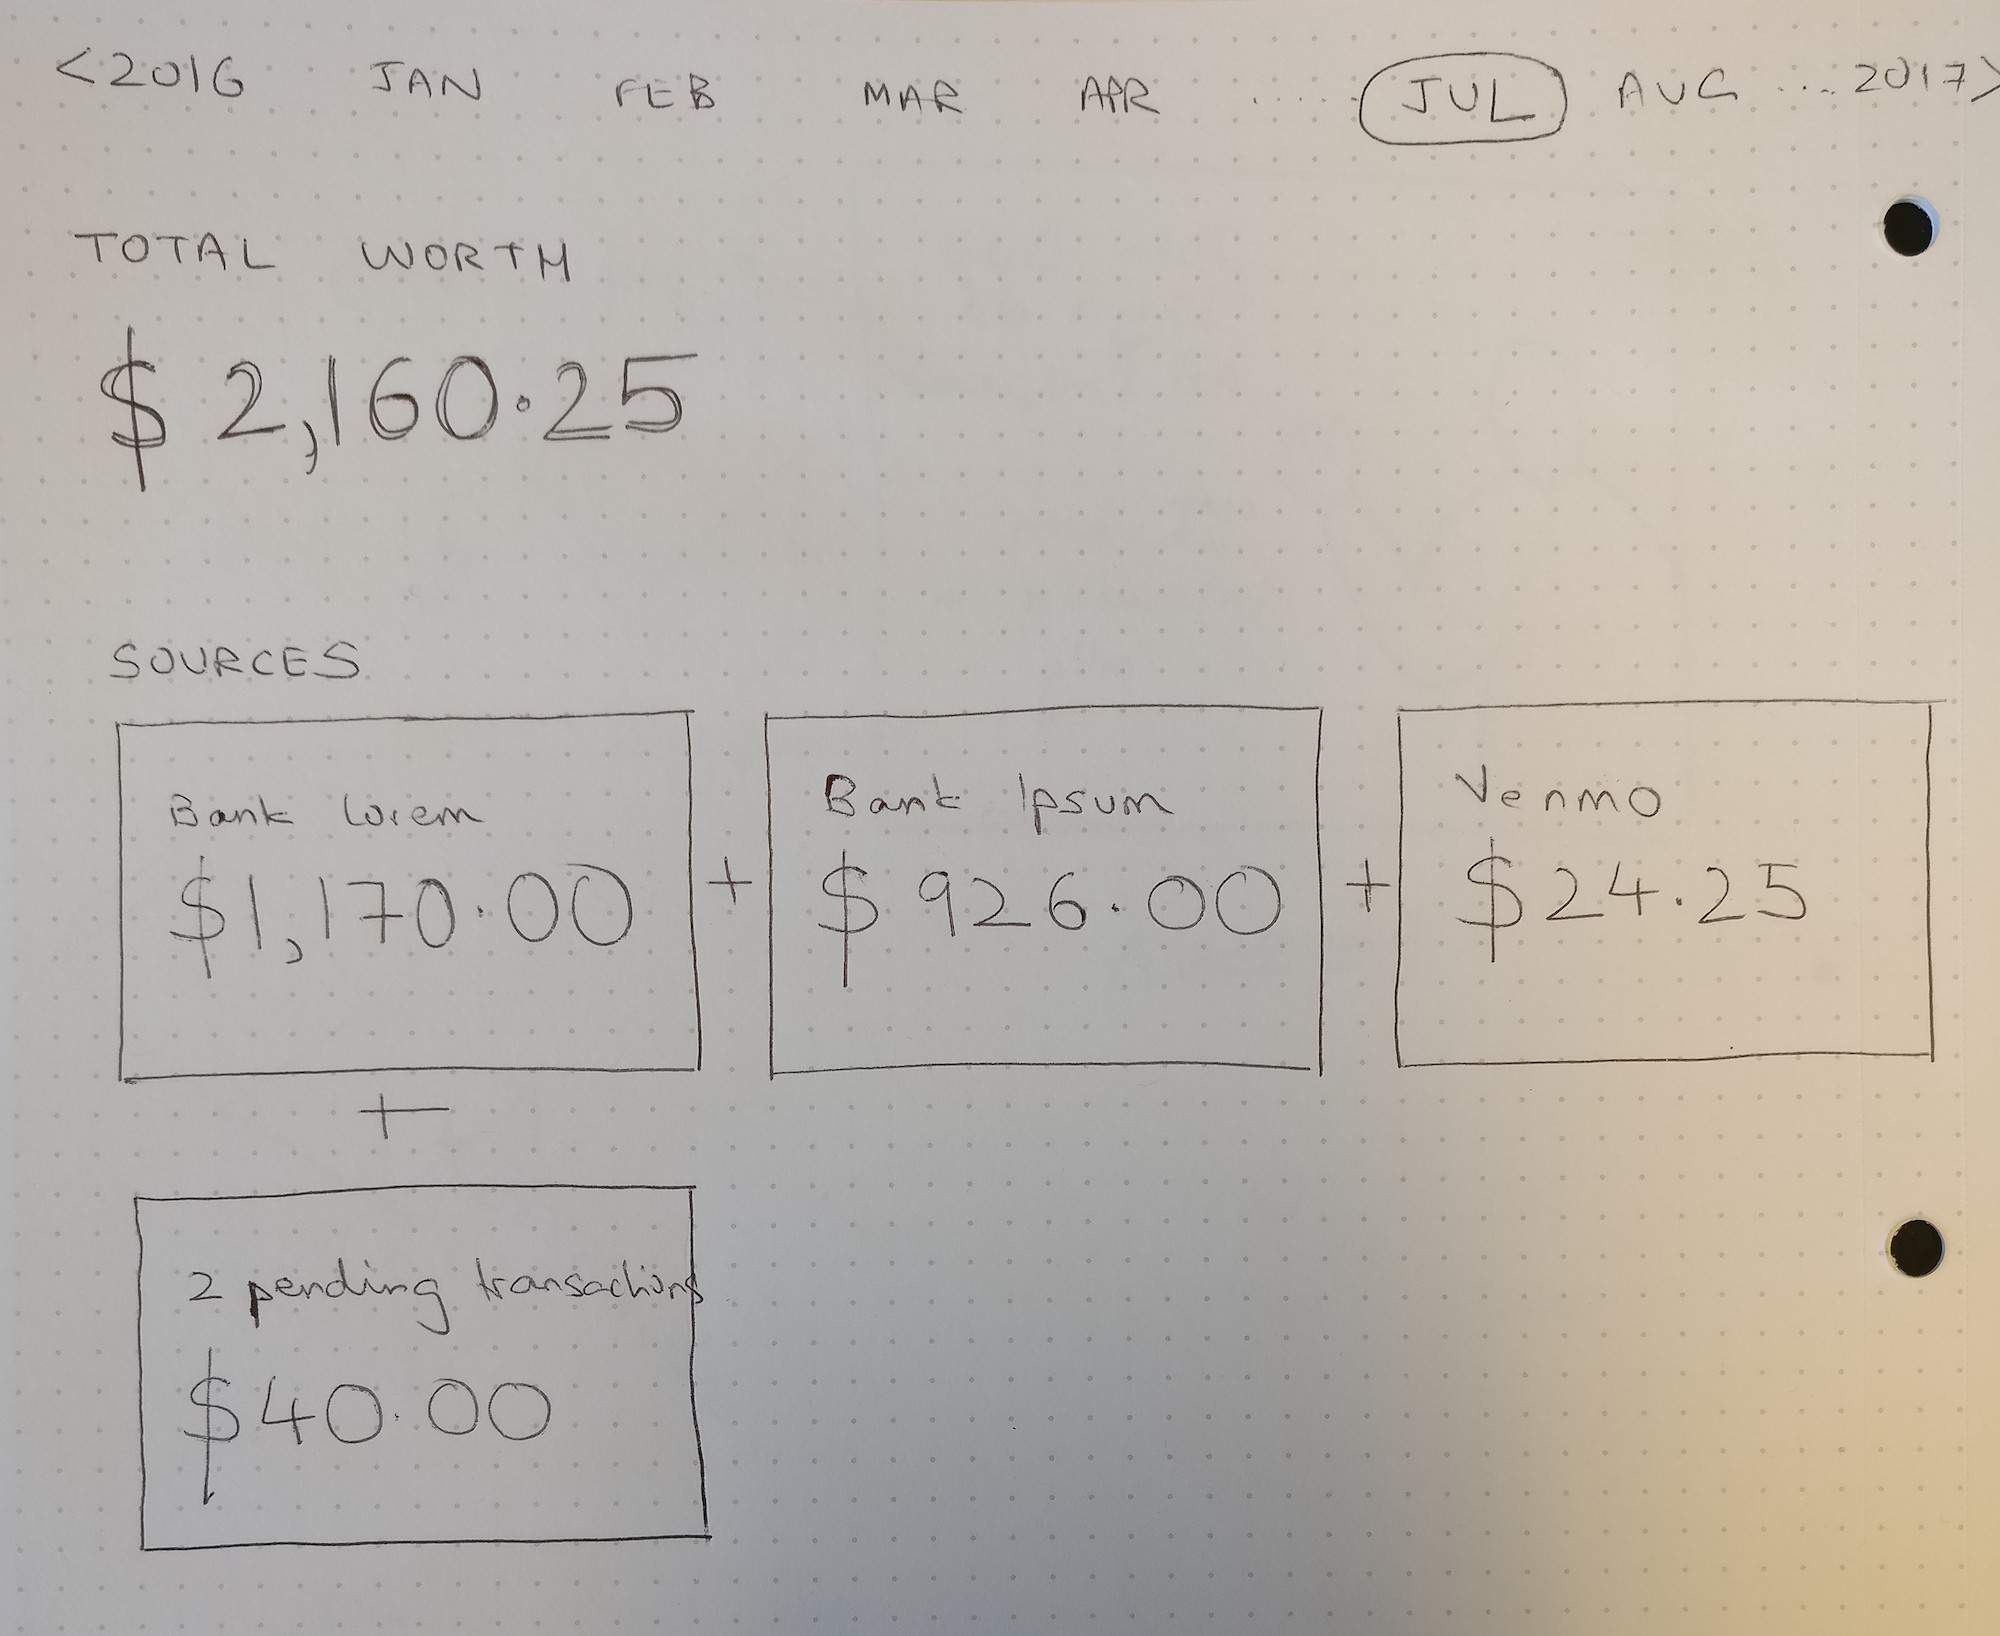 <2016 JAN FEB MAR APR ..... JUL AUG ... 2017>
TOTAL WORTH
$2,160.25
SOURCES
Bank Lorem
$1,170.00
+
Bank Ipsum
$926.00
+
Venmo
$24.25
+
2 pending transactions
$40.00